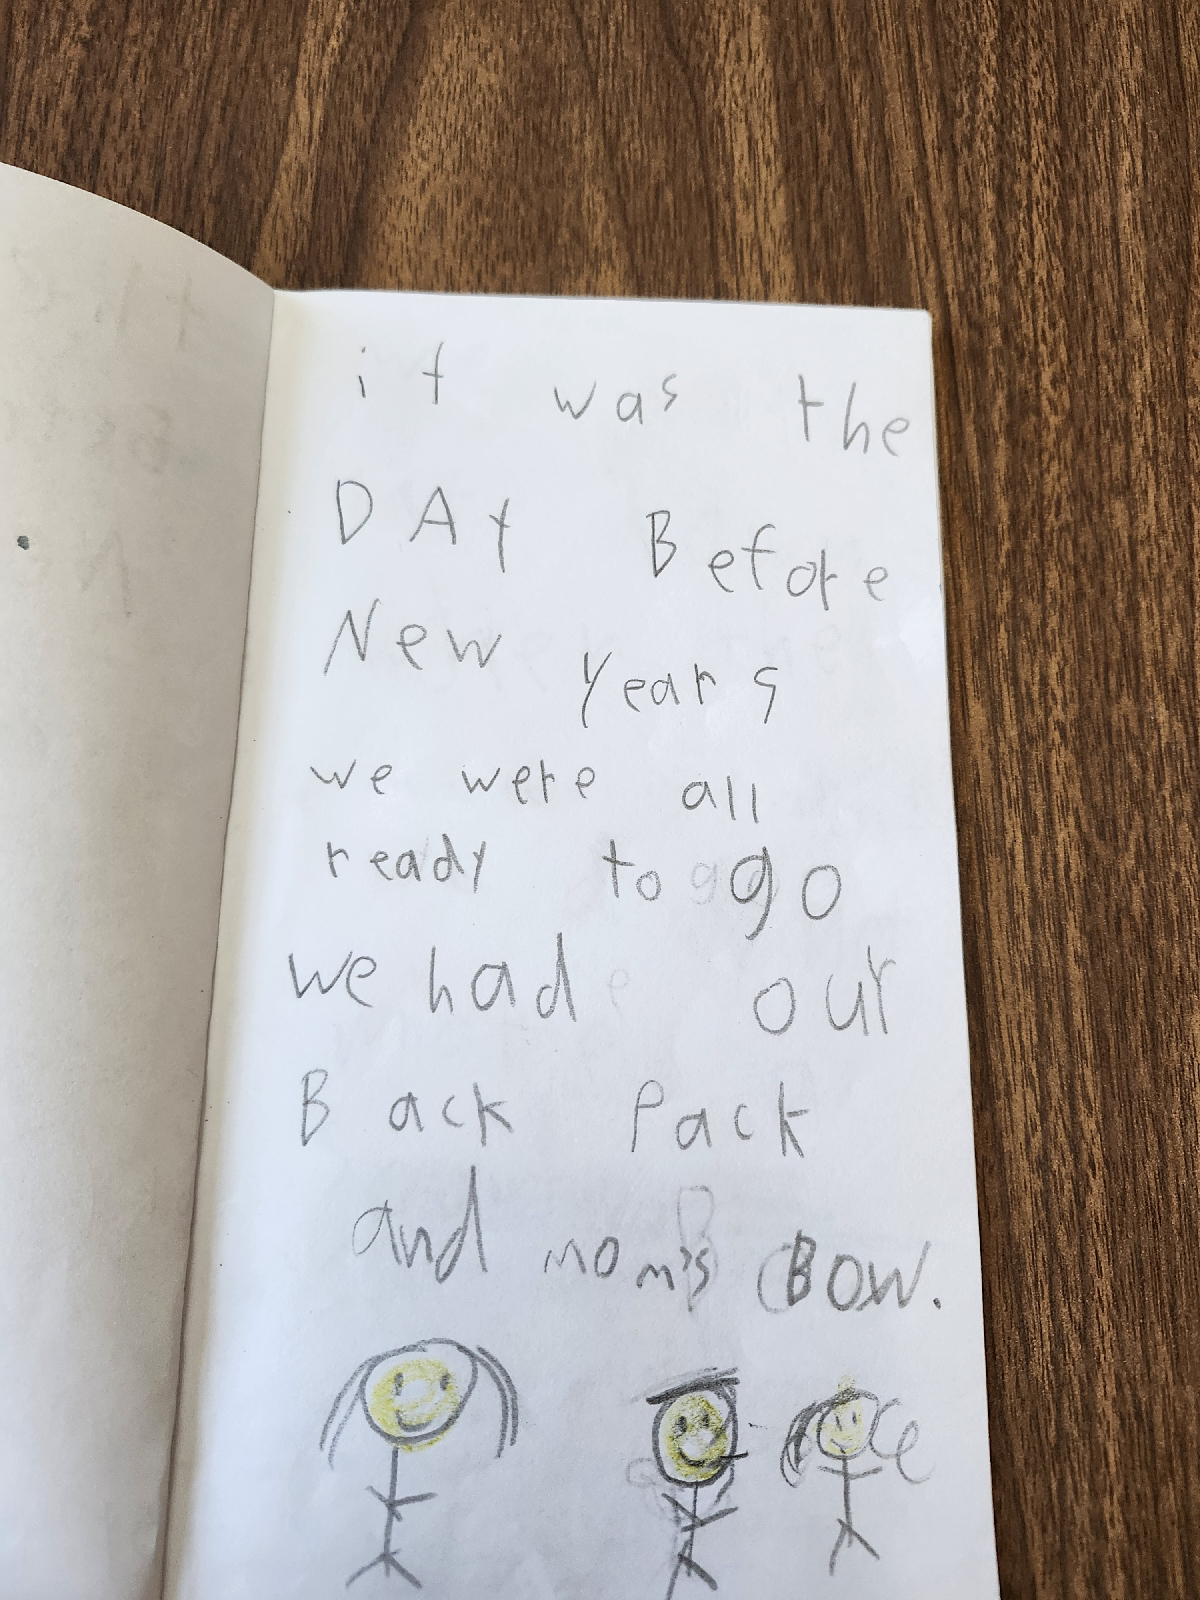 it was the
DAY Before
New Years
we were all
ready to go
we had our
Back Pack
and mom's BOW.